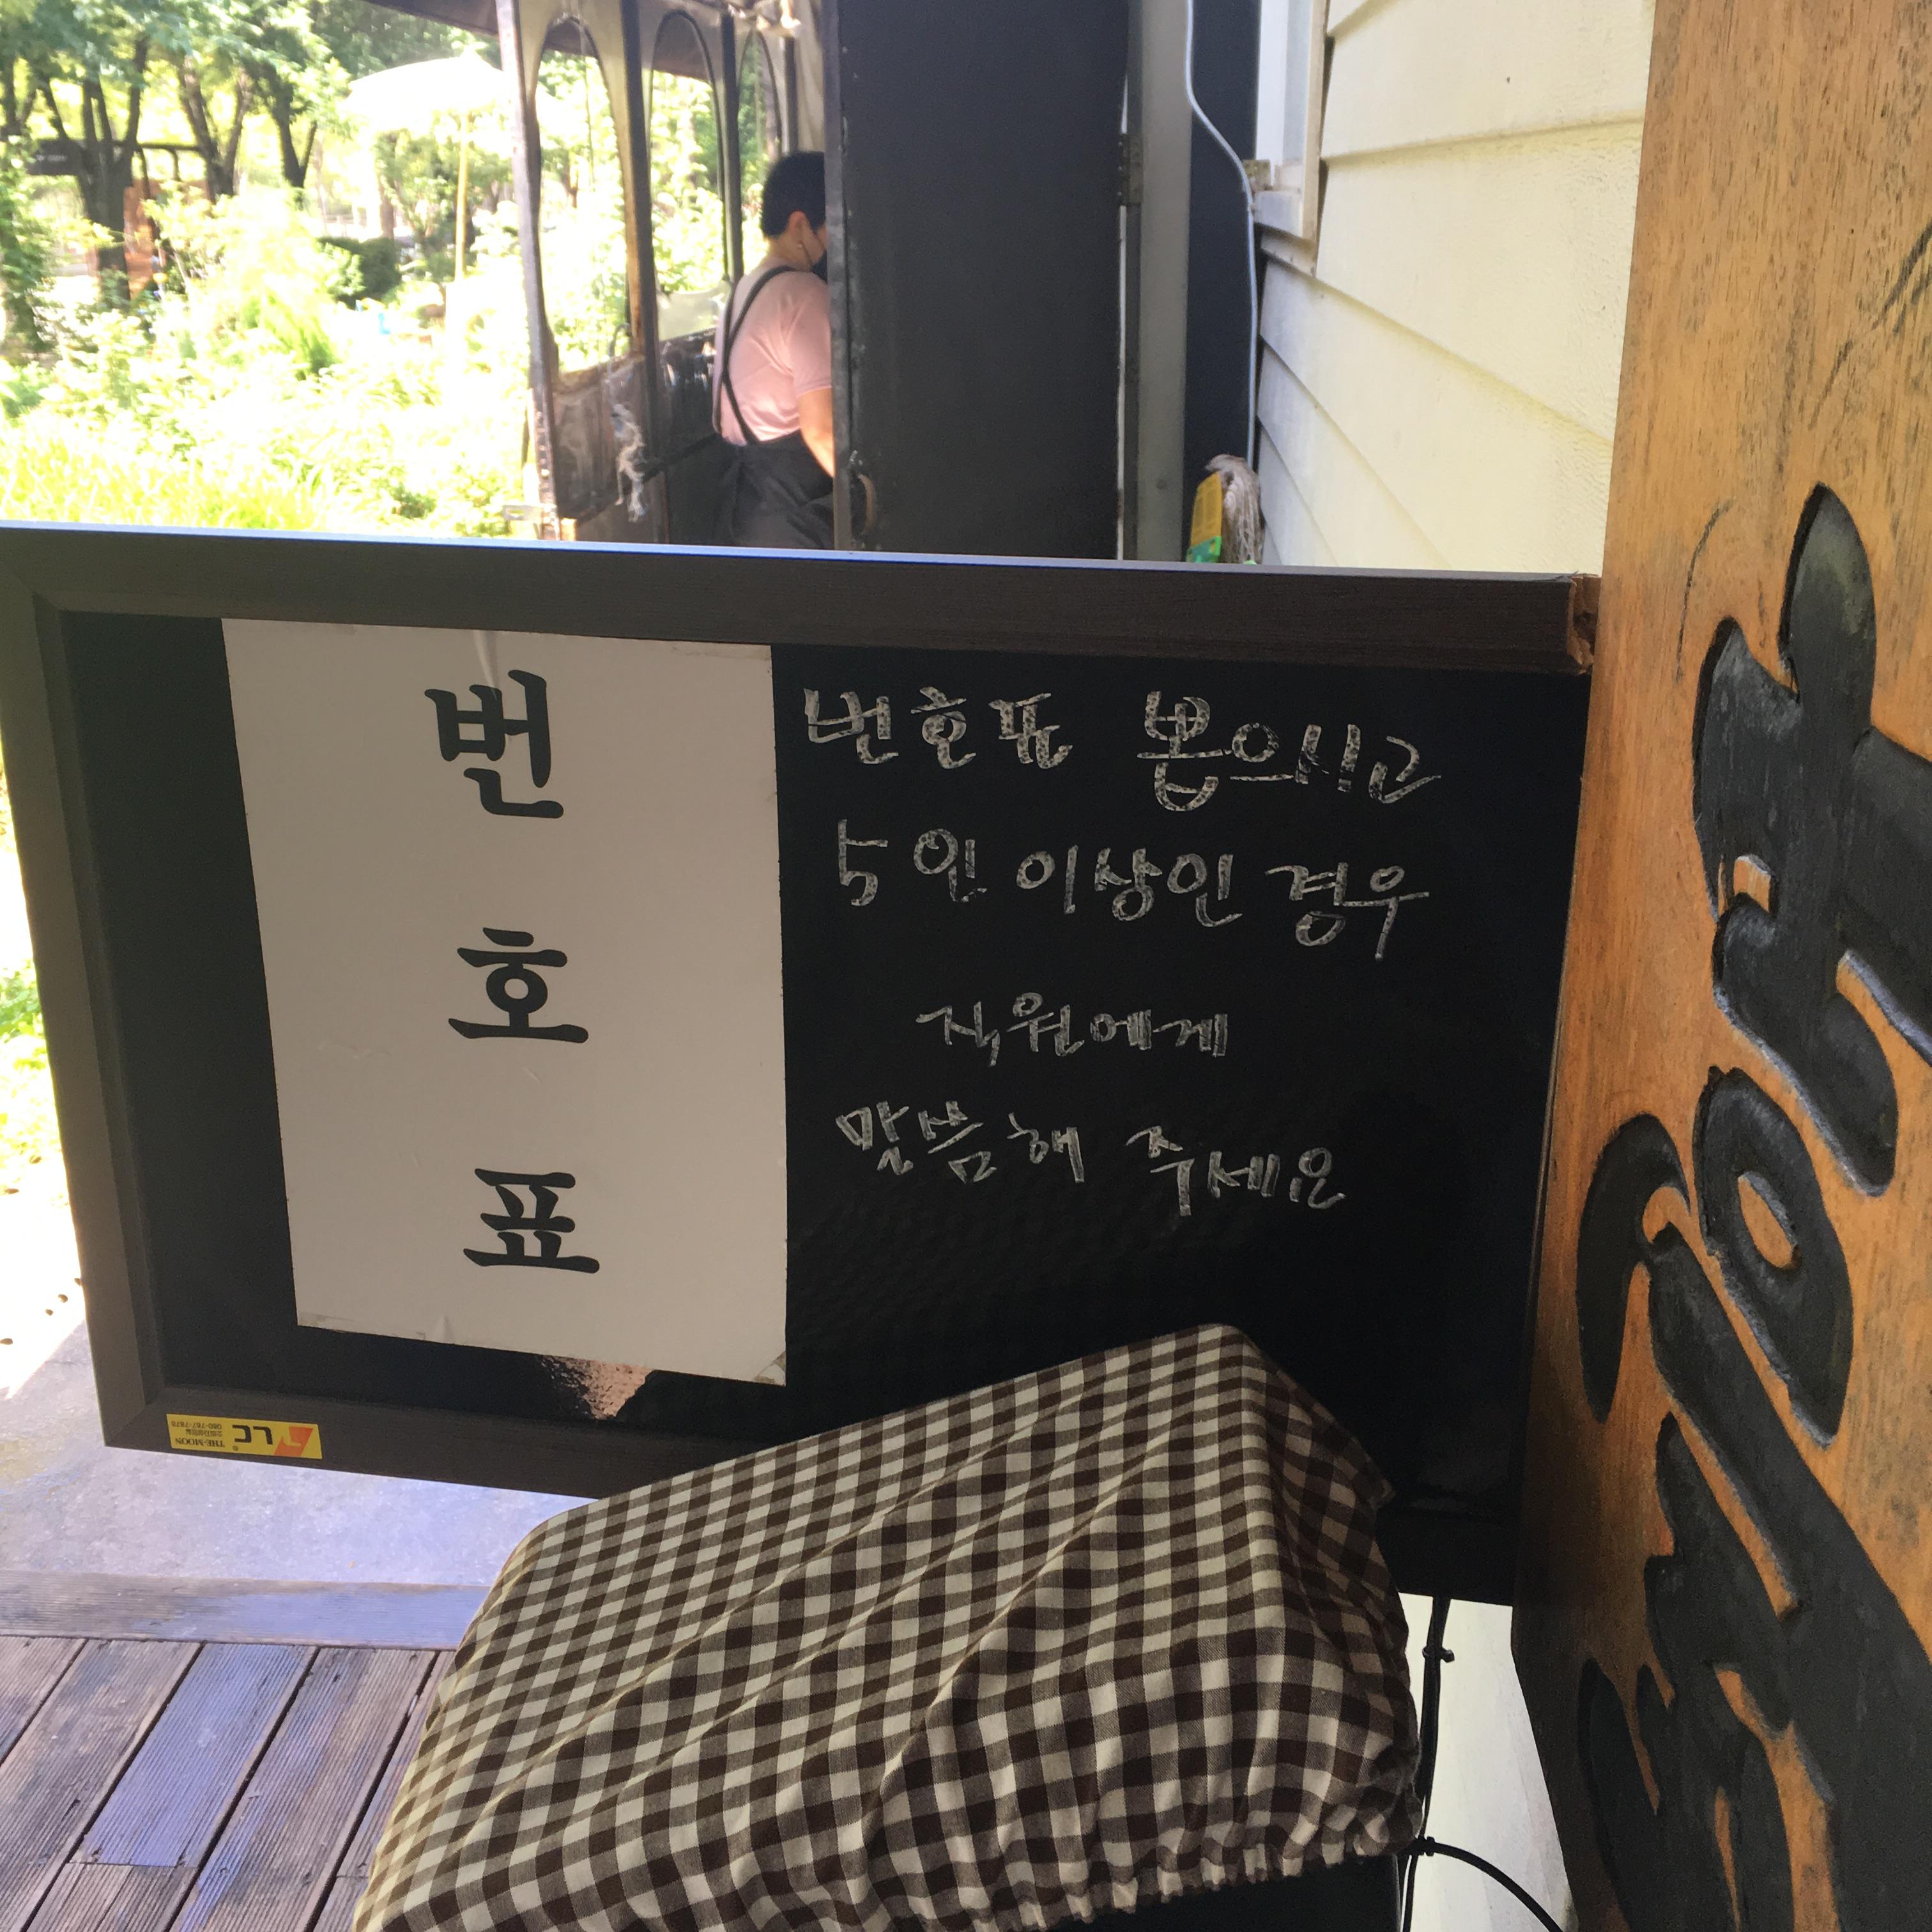 번
호
표
번호표 뽑으시고
5인 이상인 경우
직원에게
말씀해 주세요
LC
THE-MOON
080-787-7878